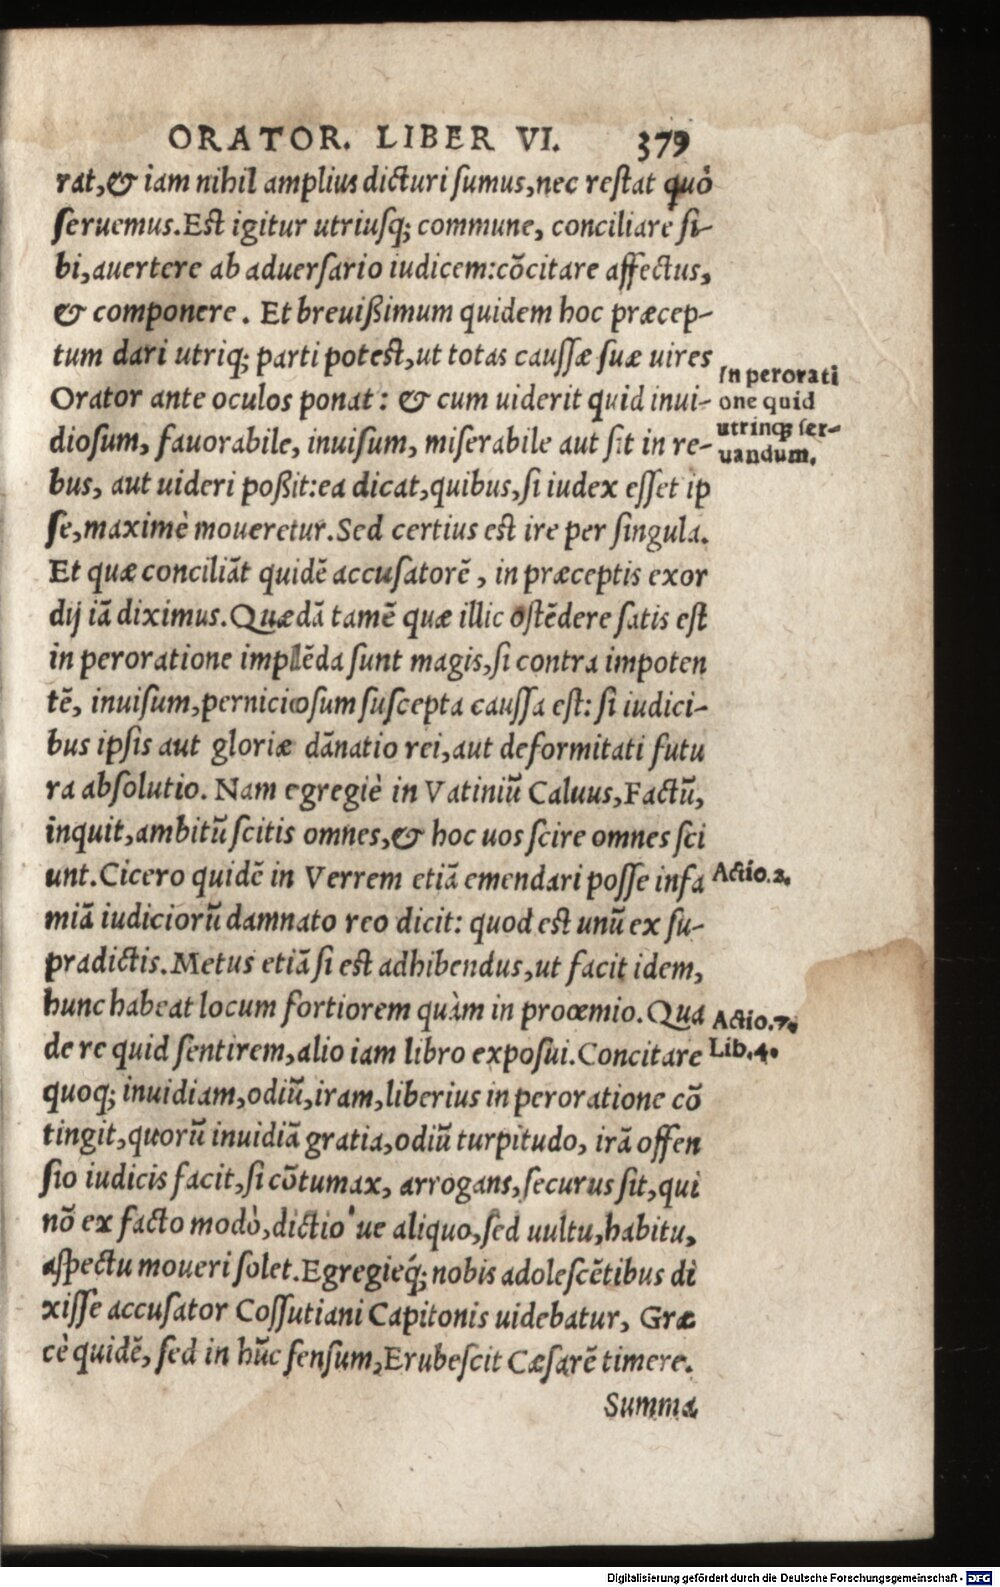 ORATOR. LIBER VI. 379
rat,& iam nihil amplius dicturi ſumus,nec reſtat quò
ſeruemus.Eſt igitur utriuſq; commune, conciliare ſi-
bi,auertere ab aduerſario iudicem:cõcitare affectus,
& componere. Et breuißimum quidem hoc præcep-
tum dari utriq; parti poteſt,ut totas cauſſæ ſuæ uires
Orator ante oculos ponat: & cum uiderit quid inui-
In perorati
one quid
utrinq; ſer-
uandum.
dioſum, fauorabile, inuiſum, miſerabile aut ſit in re-
bus, aut uideri poßit:ea dicat,quibus,ſi iudex eſſet ip
ſe,maximè moueretur.Sed certius eſt ire per ſingula.
Et quæ conciliãt quidẽ accuſatorẽ, in præceptis exor
dij iã diximus.Quædã tamẽ quæ illic oſtẽdere ſatis eſt
in peroratione implẽda ſunt magis,ſi contra impoten
tẽ, inuiſum,pernicioſum ſuſcepta cauſſa eſt: ſi iudici-
bus ipſis aut gloriæ dãnatio rei,aut deformitati futu
ra abſolutio. Nam egregiè in Vatiniũ Caluus,Factũ,
inquit,ambitũ ſcitis omnes,& hoc uos ſcire omnes ſci
unt.Cicero quidẽ in Verrem etiã emendari poſſe infa
Actio.2.
miã iudiciorũ damnato reo dicit: quod eſt unũ ex ſu-
pradictis.Metus etiã ſi eſt adhibendus,ut facit idem,
hunc habeat locum fortiorem quàm in prooemio.Qua
Actio.7.
de re quid ſentirem,alio iam libro expoſui.Concitare
Lib.4.
quoq; inuidiam,odiũ,iram,liberius in peroratione cõ
tingit,quorũ inuidiã gratia,odiũ turpitudo, irã offen
ſio iudicis facit,ſi cõtumax, arrogans,ſecurus ſit,quì
nõ ex facto modò,dictio'ue aliquo,ſed uultu,habitu,
aſpectu moueri ſolet.Egregieq́; nobis adoleſcẽtibus di
xiſſe accuſator Coſſutiani Capitonis uidebatur, Græ
cè quidẽ, ſed in hũc ſenſum,Erubeſcit Cæſarẽ timere.
Summa
Digitalisierung gefördert durch die Deutsche Forschungsgemeinschaft - DFG